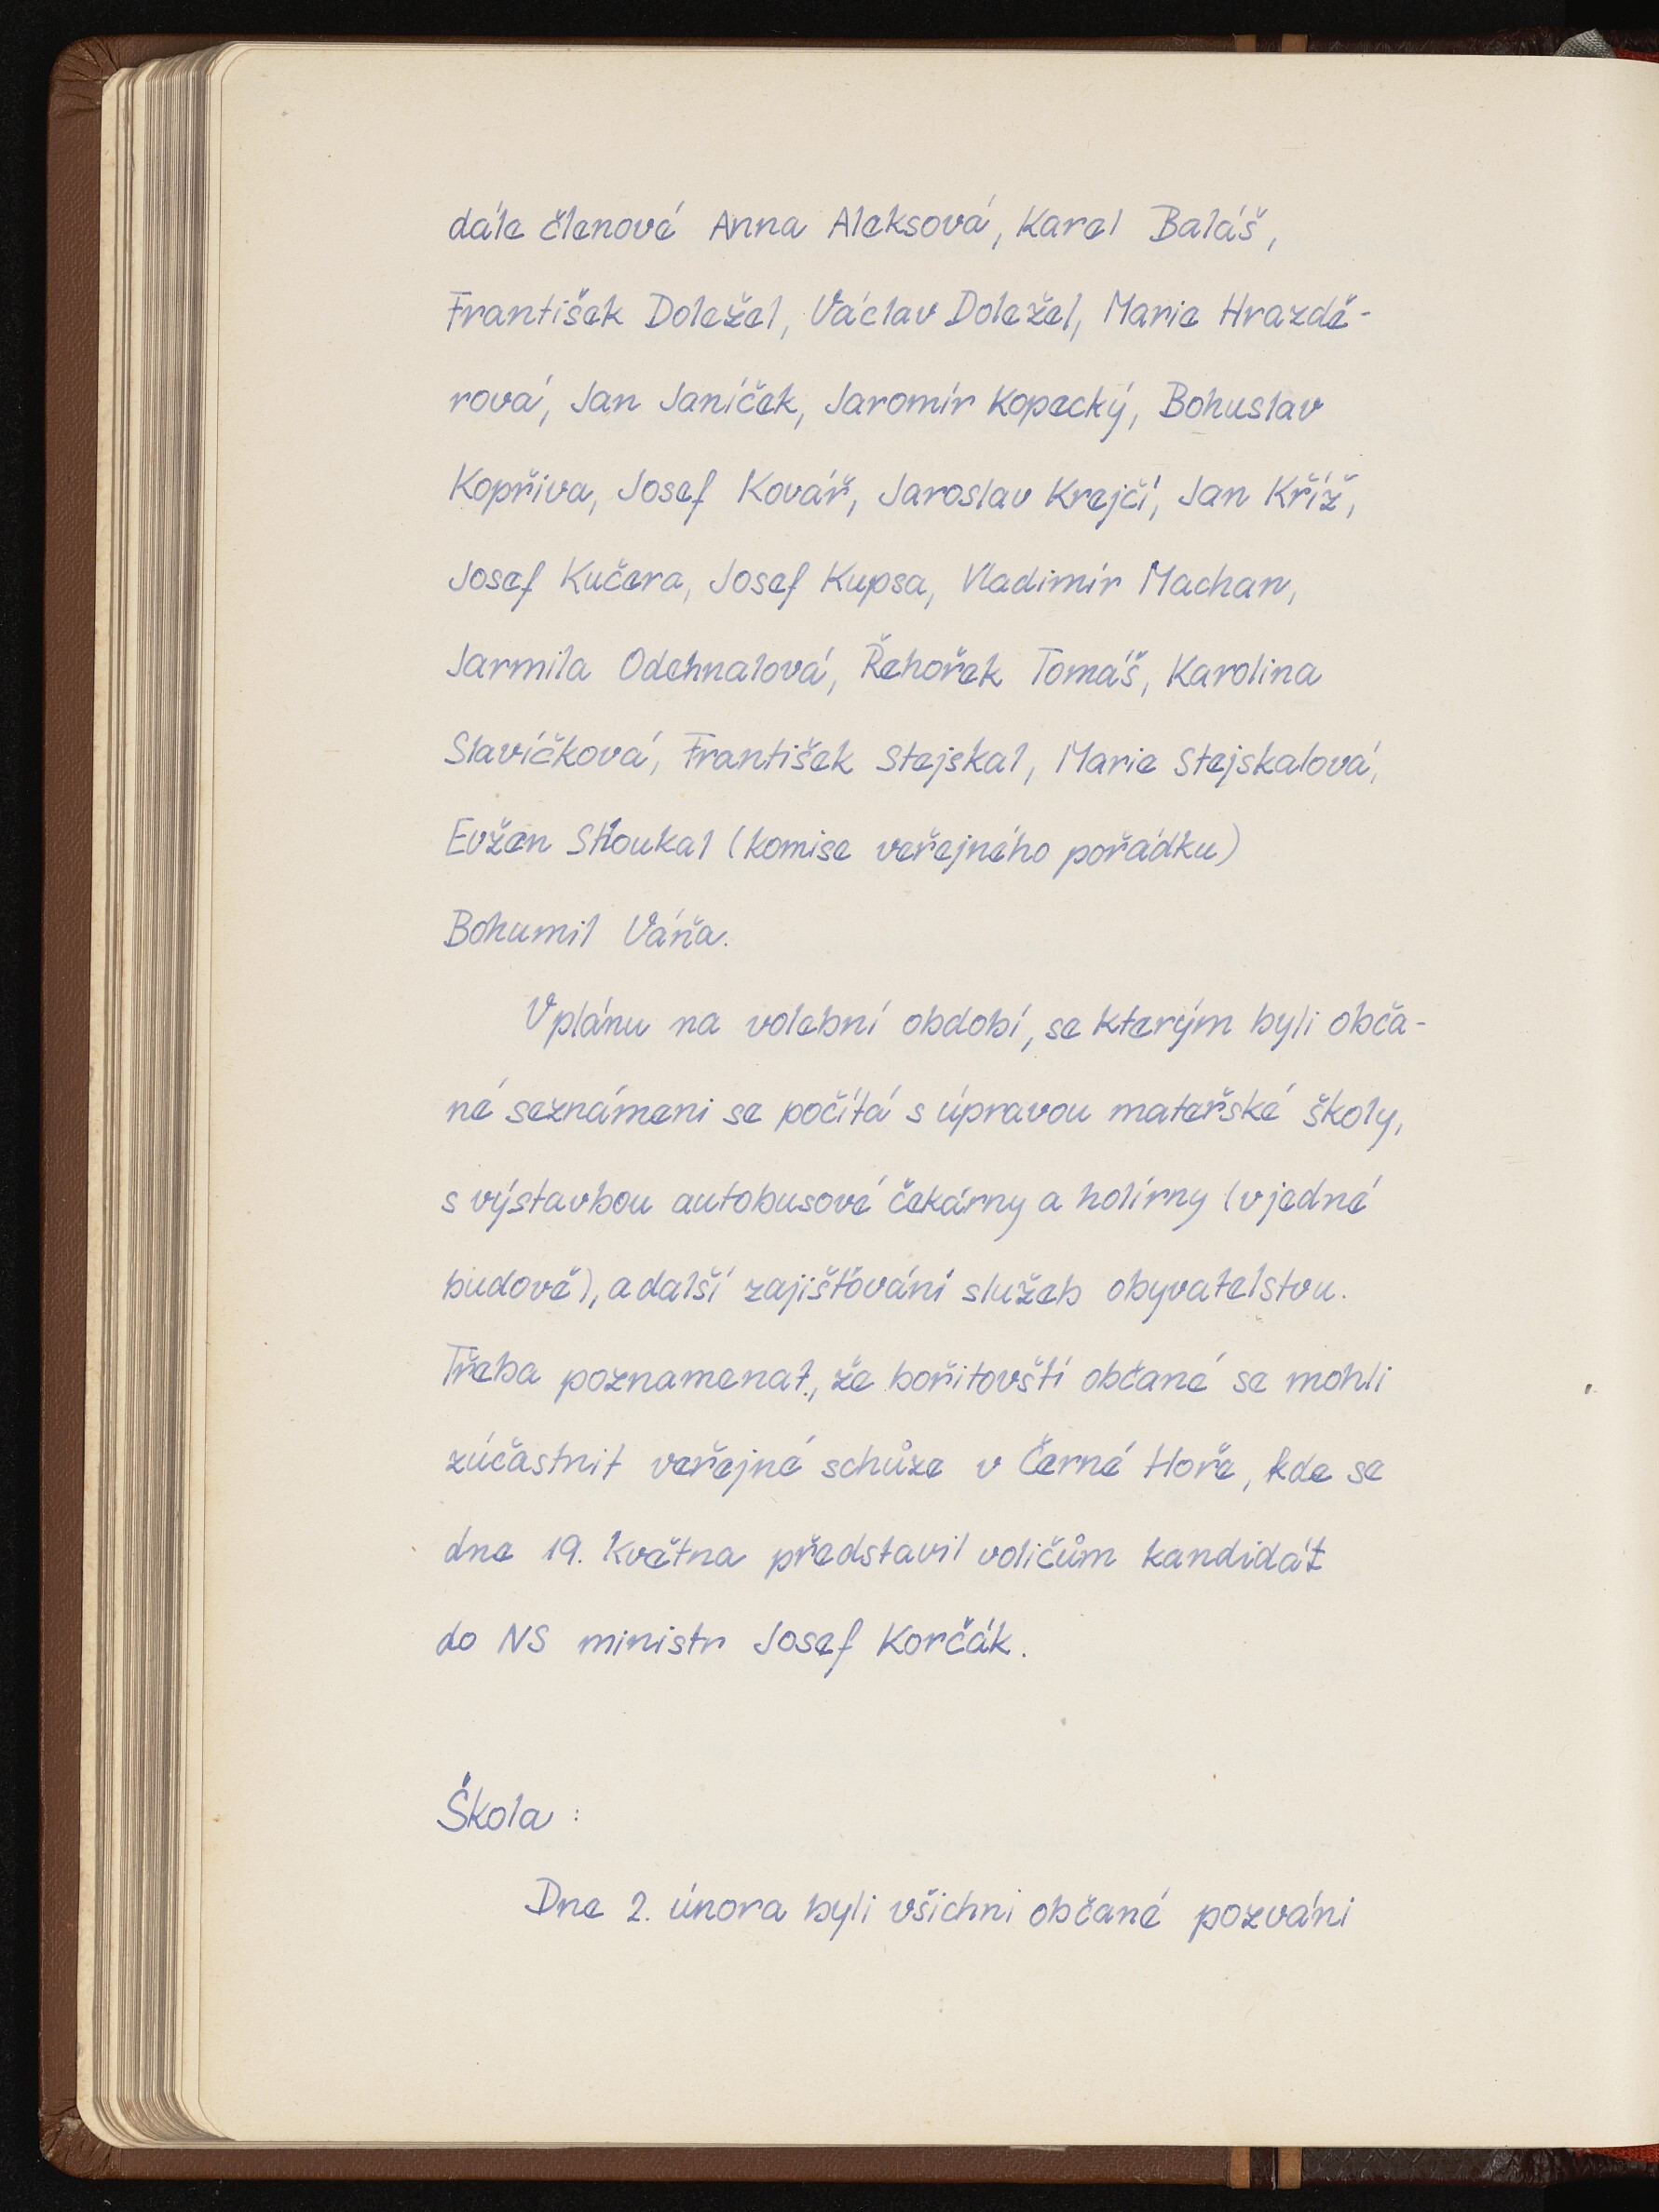 dále členové Anna Aleksová, Karel Baláš,
František Doležel, Václav Doležel, Marie Hrazdě-
rová, Jan Janíček, Jaromír Kopecký, Bohuslav
Kopřiva, Josef Kovář, Jaroslav Krejčí, Jan Kříž,
Josef Kučera, Josef Kupsa, Vladimír Machan,
Jarmila Odehnalová, Řehořek Tomáš, Karolina
Slavíčková, František Stejskal, Marie Stejskalová,
Evžen Stloukal (komise veřejného pořádku)
Bohumil Váňa.
V plánu na volební období, se kterým byli obča-
né seznámeni se počítá s úpravou mateřské školy,
s výstavbou autobusové čekárny a holírny (v jedné
budově), a další zajišťování služeb obyvatelstvu.
Třeba poznamenat, že bořitovští občané se mohli
zúčastnit veřejné schůze v Černé Hoře, kde se
dne 19. května představil voličům kandidát
do NS ministr Josef Korčák.
Škola :
Dne 2. února byli všichni občané pozváni